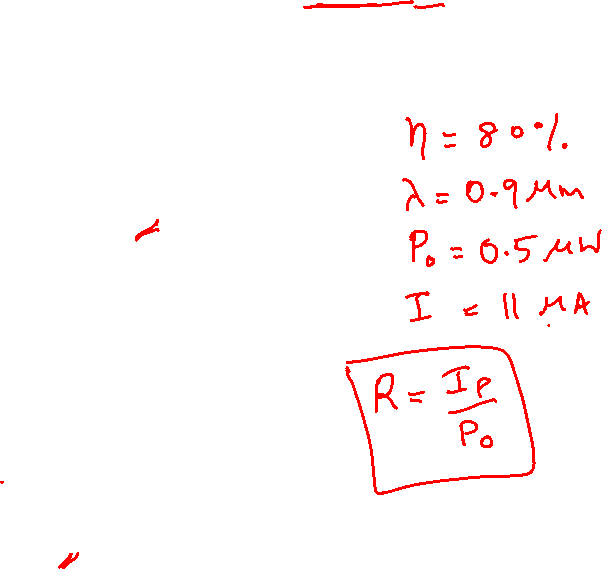 η = 80%.
λ = 0.9 μm
P₀ = 0.5 μW
I = 11 μA
R = I_P / P₀